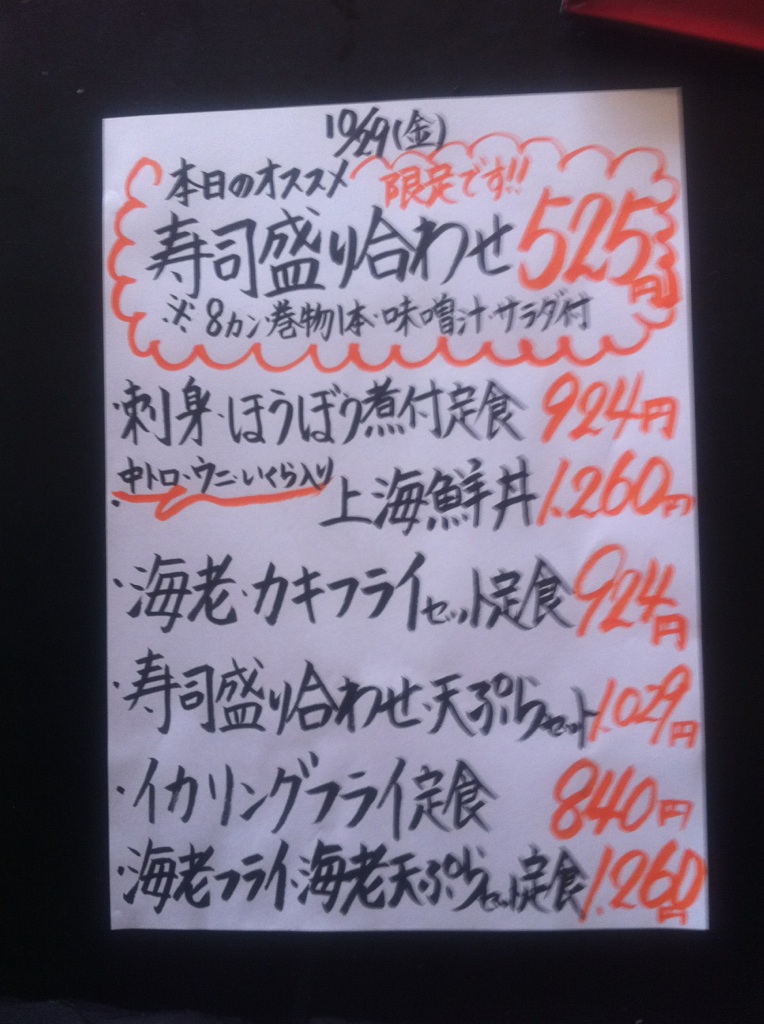 10/29(金)
本日のオススメ 限定です!!
寿司盛り合わせ 525円
※8カン・巻物1本・味噌汁・サラダ付
・刺身・ほうぼう煮付定食 924円
中トロ・ウニ・いくら入り
・上海鮮丼 1.260円
・海老・カキフライセット定食 924円
・寿司盛り合わせ・天ぷらセット 1.029円
・イカリングフライ定食 840円
・海老フライ・海老天ぷらセット定食 1.260円